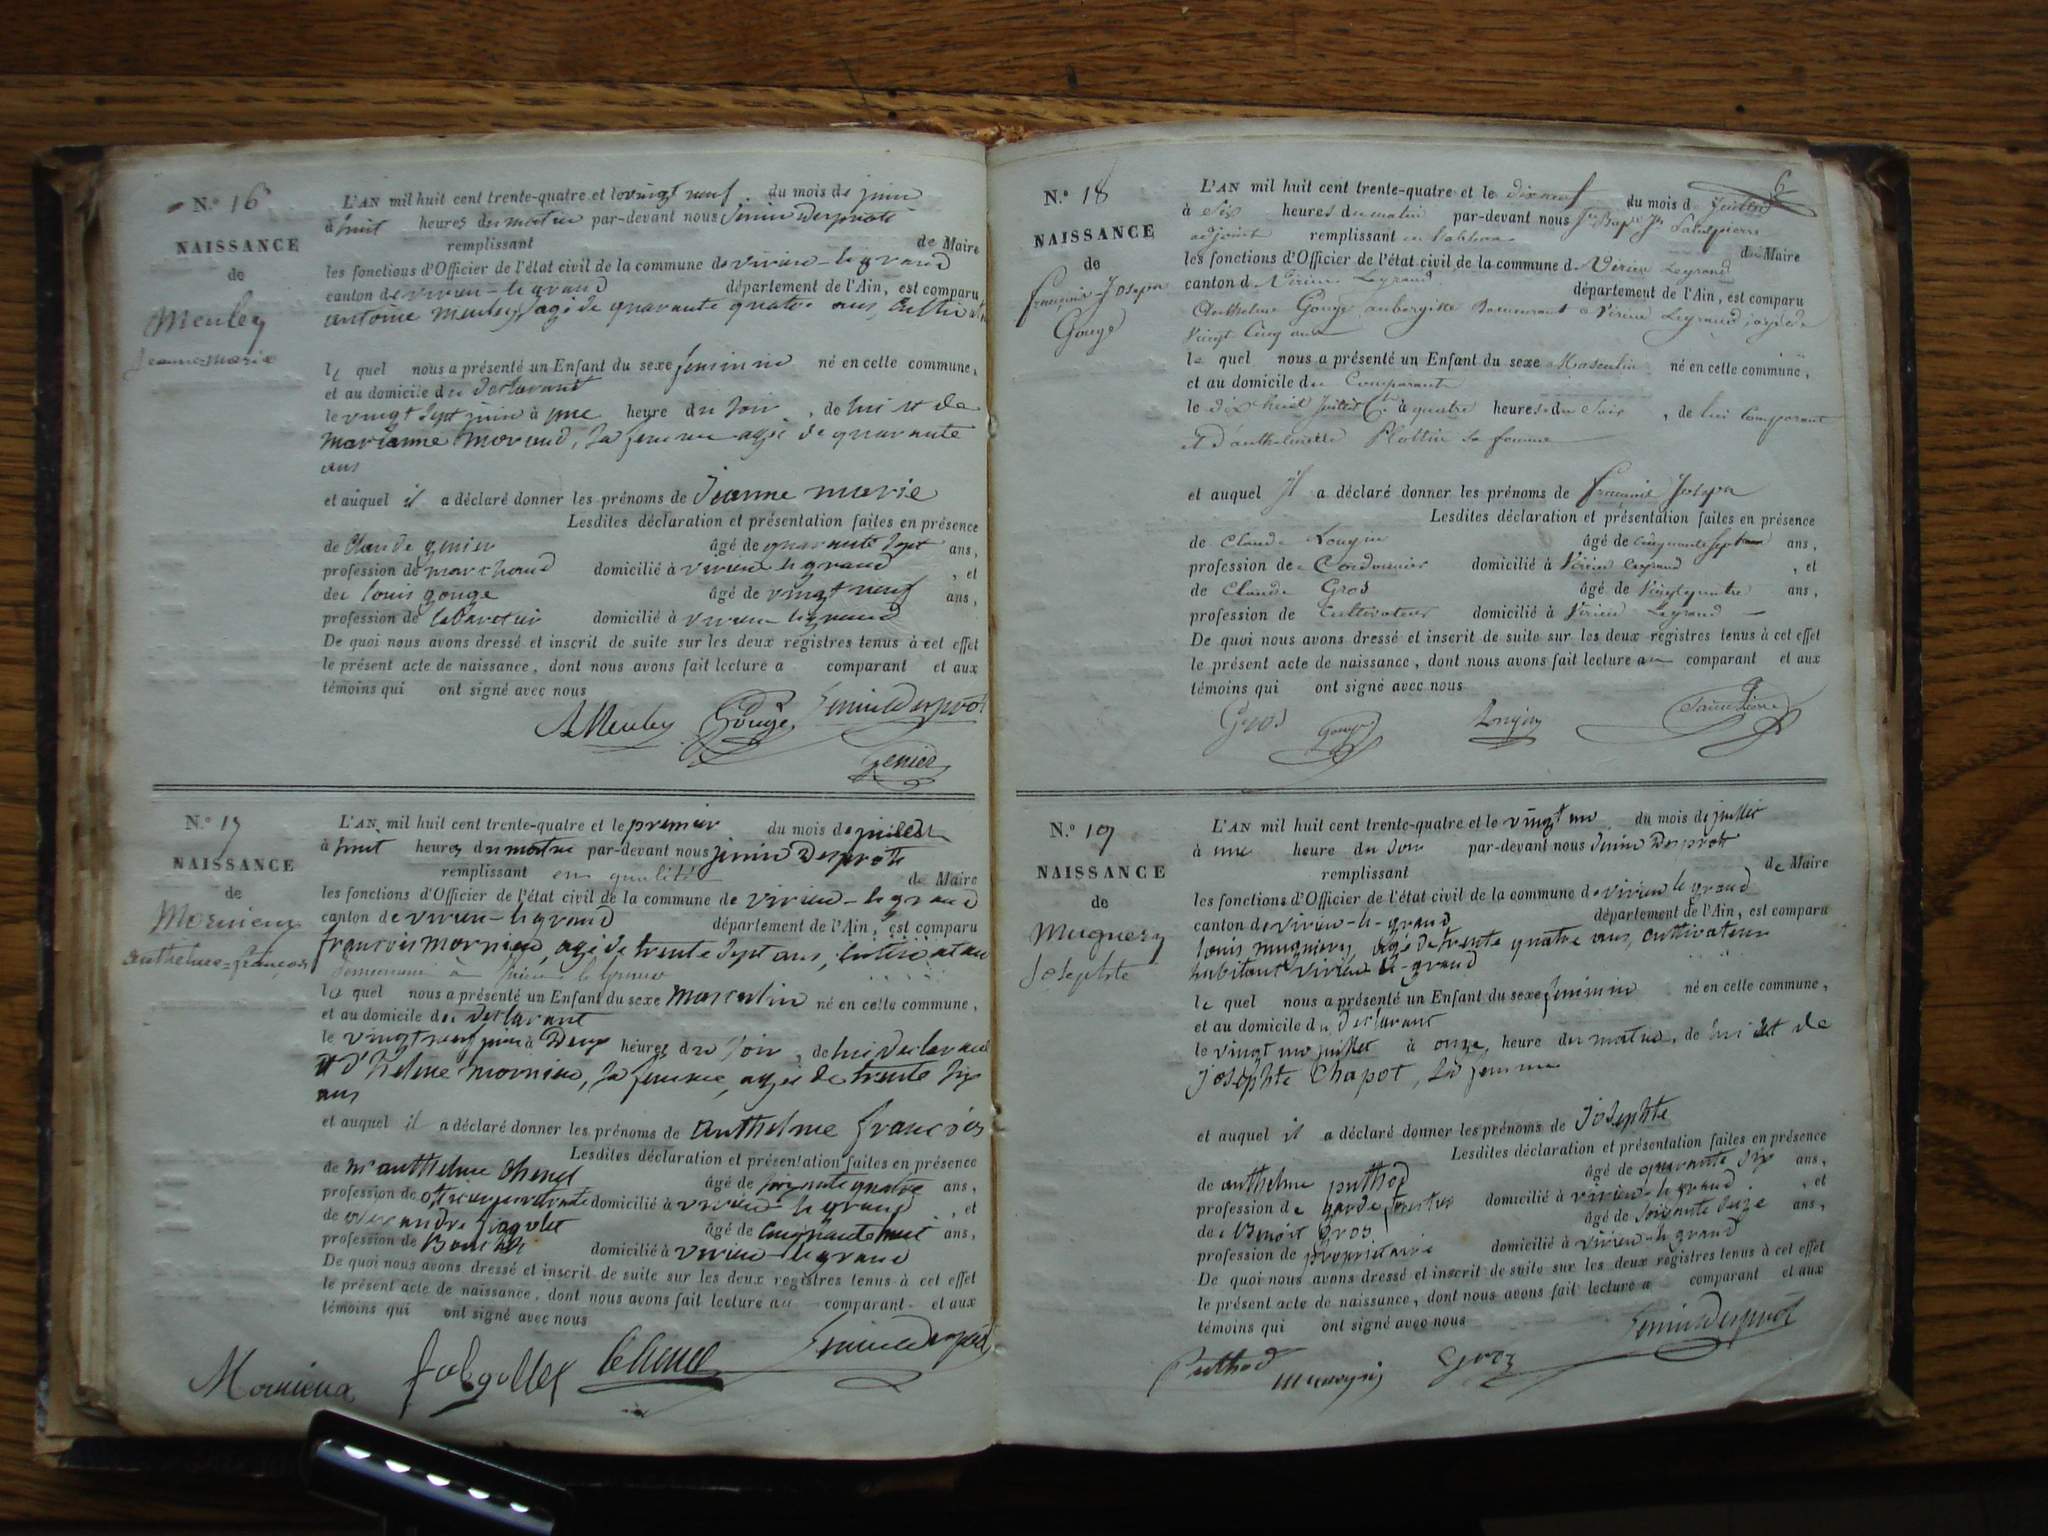 N.º 16
NAISSANCE
de
Meuley
Jeanne-Marie
L'AN mil huit cent trente-quatre et le vingt neuf du mois de juin
à huit heures du matin par-devant nous
remplissant de Maire
les fonctions d'Officier de l'état civil de la commune de virieu-le grand
canton de virieu-le grand département de l'Ain, est comparu
antoine meuley, agé de quarante quatre ans,
le quel nous a présenté un Enfant du sexe feminin né en cette commune,
et au domicile du declarant
le vingt sept juin à une heure du soir, de lui et de
marianne morand, sa femme agée de quarante
ans
et auquel il a déclaré donner les prénoms de Jeanne marie
Lesdites déclaration et présentation faites en présence
de Claude genier âgé de quarante sept ans,
profession de marchand domicilié à virieu le grand, et
de louis gouge âgé de vingt neuf ans,
profession de cabaretier domicilié à virieu le grand
De quoi nous avons dressé et inscrit de suite sur les deux registres tenus à cet effet
le présent acte de naissance, dont nous avons fait lecture a comparant et aux
témoins qui ont signé avec nous
A Meuley Gouge
genier
N.º 17
NAISSANCE
de
Mornieux
anthelme=françois
L'AN mil huit cent trente-quatre et le premier du mois de juillet
à huit heures du matin par-devant nous
remplissant en qualité de Maire
les fonctions d'Officier de l'état civil de la commune de virieu-le grand
canton de virieu-le grand département de l'Ain, est comparu
françois mornieu, agé de trente sept ans,
le quel nous a présenté un Enfant du sexe masculin né en cette commune,
et au domicile du declarant
le vingt neuf juin à Deux heures du soir, de lui declarant
et d'helene mornieu, sa femme, agée de trente six
ans
et auquel il a déclaré donner les prénoms de anthelme françois
Lesdites déclaration et présentation faites en présence
de mr anthelme âgé de soixante quatre ans,
profession de domicilié à virieu le grand, et
de âgé de cinquante huit ans,
profession de domicilié à virieu-le grand
De quoi nous avons dressé et inscrit de suite sur les deux registres tenus à cet effet
le présent acte de naissance, dont nous avons fait lecture au comparant et aux
témoins qui ont signé avec nous
6
N.º 18
NAISSANCE
de
françois-Joseph
Gouge
L'AN mil huit cent trente-quatre et le dix neuf du mois de Juillet
à Six heures du matin par-devant nous
adjoint remplissant de Maire
les fonctions d'Officier de l'état civil de la commune de Virieu Legrand
canton de Virieu Legrand département de l'Ain, est comparu
Anthelme Gouge aubergiste Demeurant a Virieu Legrand, agé de
Vingt Cinq ans
le quel nous a présenté un Enfant du sexe Masculin né en cette commune,
et au domicile du Comparant
le dix huit Juillet Ct à quatre heures du Soir, de lui Comparant
et d'anthelmette Plottin sa femme
et auquel Il a déclaré donner les prénoms de françois Joseph
Lesdites déclaration et présentation faites en présence
de Claude âgé de Cinquante Sept ans,
profession de Cordonnier domicilié à Virieu Legrand, et
de Claude Gros âgé de Vingtquatre ans,
profession de Cultivateur domicilié à Virieu Legrand
De quoi nous avons dressé et inscrit de suite sur les deux registres tenus à cet effet
le présent acte de naissance, dont nous avons fait lecture au comparant et aux
témoins qui ont signé avec nous
Gros Gouge
N.º 19
NAISSANCE
de
Mugniery
Josephte
L'AN mil huit cent trente-quatre et le vingt un du mois de juillet
à une heure du soir par-devant nous
remplissant de Maire
les fonctions d'Officier de l'état civil de la commune de virieu le grand
canton de virieu-le-grand département de l'Ain, est comparu
louis mugniery agé de trente quatre ans, cultivateur
habitant virieu le-grand
le quel nous a présenté un Enfant du sexe feminin né en cette commune,
et au domicile du declarant
le vingt un juillet à onze heure du matin, de lui et de
josephte Chapot, sa femme
et auquel il a déclaré donner les prénoms de josephte
Lesdites déclaration et présentation faites en présence
de anthelme puthod âgé de quarante six ans,
profession de garde domicilié à virieu-le grand, et
de Benoit gros âgé de soixante seize ans,
profession de propriétaire domicilié à virieu-le grand
De quoi nous avons dressé et inscrit de suite sur les deux registres tenus à cet effet
le présent acte de naissance, dont nous avons fait lecture a comparant et aux
témoins qui ont signé avec nous
Puthod